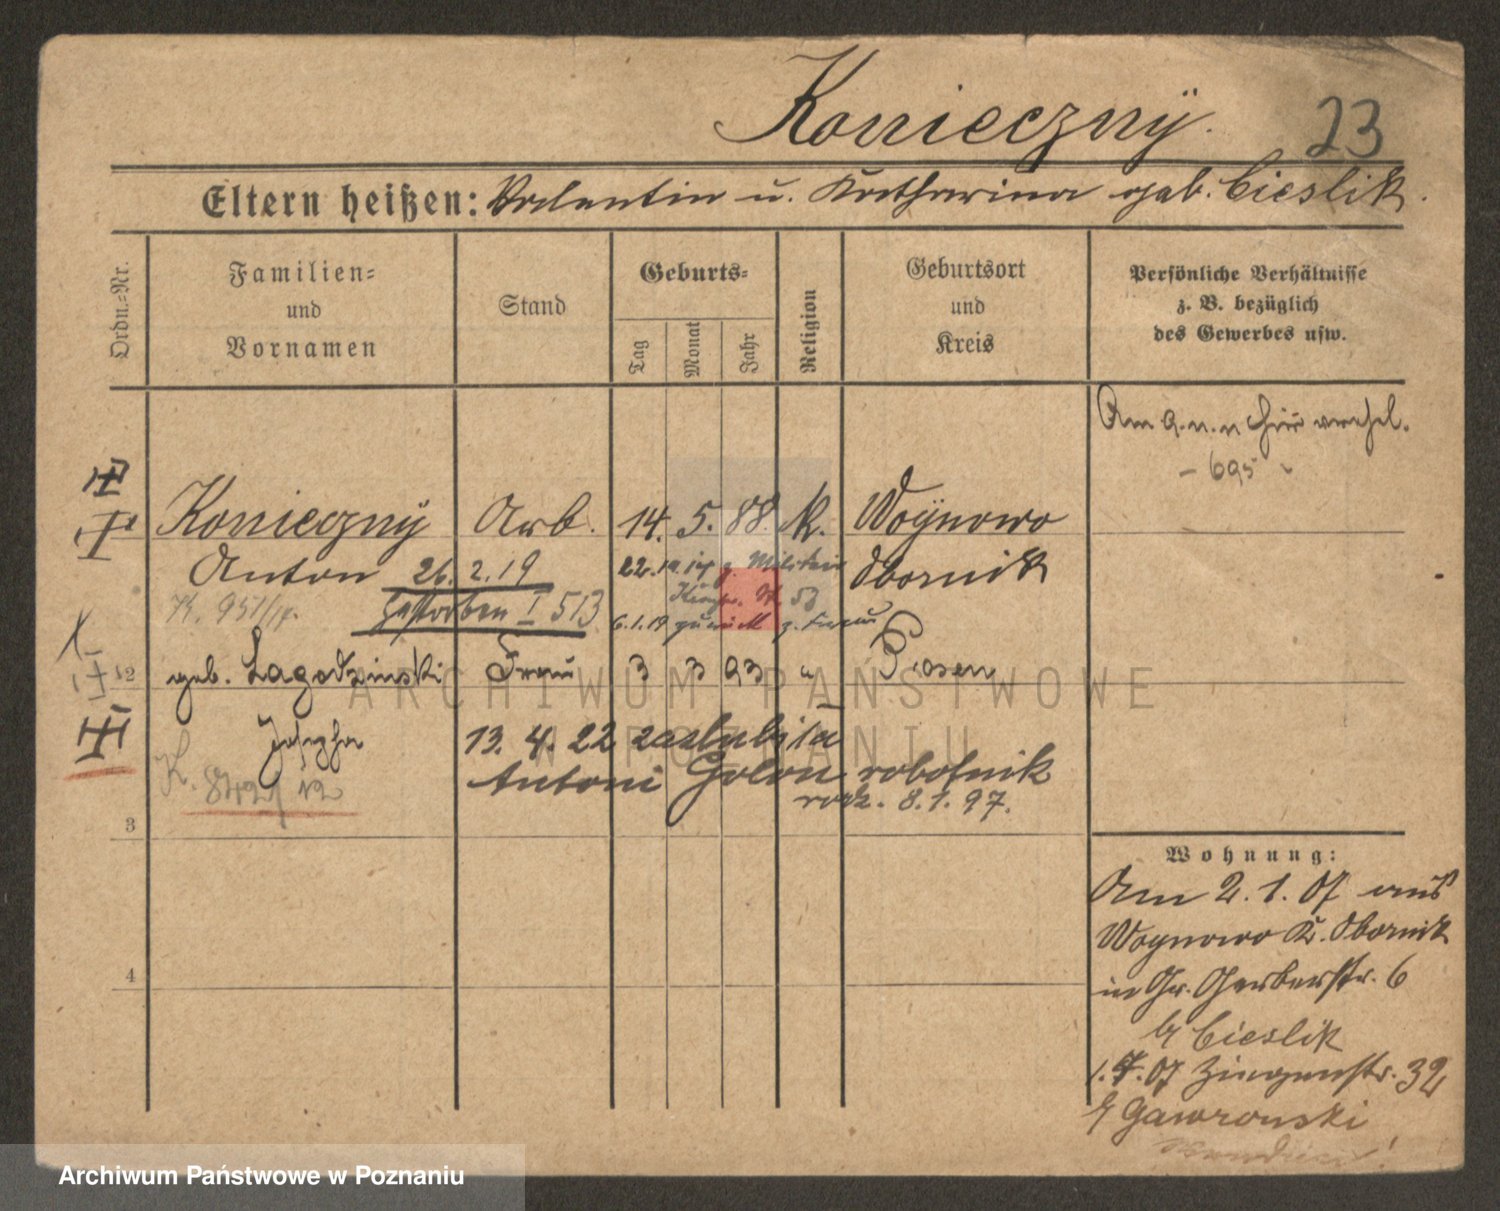 Konieczny. 23
Eltern heißen: Valentin u. Katharina geb. Cieslik.
Ordn.=Nr.
Familien=
und
Vornamen
Stand
Geburts=
Tag
Monat
Jahr
Religion
Geburtsort
und
Kreis
Persönliche Verhältnisse
z. B. bezüglich
des Gewerbes usw.
Am 9. n. n hier verehel.
- 695
Konieczny Arb. 14. 5. 88. k. Woynowo
Anton 26. 2. 19 z. Militair Obornik
K. 951/14. gestorben I 513
6. 1. 19 zurück z. Frau
2 geb. Lagodzinski Frau 3 3 93 " Posen
Josepha 13. 4. 22 zaslubiła
K. 842/12 Antoni Golon robotnik
rodz. 8. 1. 97.
3
4
Wohnung:
Am 2. 1. 07 aus
Woynowo K. Obornik
in Gr. Gerberstr. 6
b/ Cieslik
1. 4. 07 Ziegenstr. 32
b/ Gawronski
ARCHIWUM PAŃSTWOWE
W POZNANIU
Archiwum Państwowe w Poznaniu